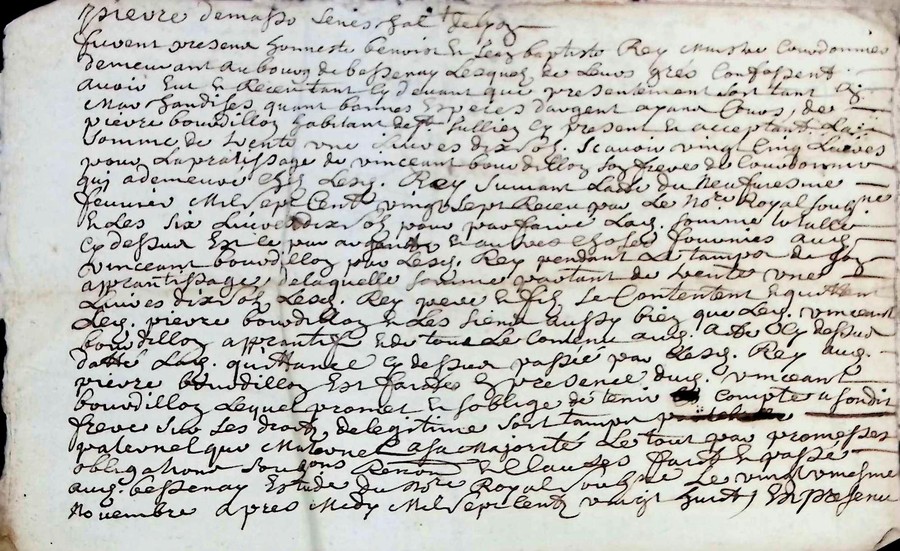 pierre demasso seneschal de lyon
furent presens honneste benoist et Jean baptiste Rey Maistre Courdonnier
demeurant au bourg de bessenay Lesquels de Leurs grés Confessent
avoir Eut et Receu tant Cy devant que presentement sort tant
Marchandises quant bonnes Especes dargent ayant Cours, de
pierre bourdillon habitant de St Jullien Cy present et acceptant La
somme de trente une Livres dix sols, scavoir vingt Cinq Livres
pour Lapratissage de vinceant bourdillon son frere de Courdonnier
qui a demeuré chez Lesd. Rey suivant Lacte du Neufviesme
feuvrier Mil sept Cent vingt sept Receu par Le Nore Royal soussigné
Et Les six Livres dix sols pour parfaire Lad. somme totalle
Cy dessus Est Ce par avant et autres choses fournies aud.
vinceant bourdillon par Lesd. Rey pendant Le tampt de son
apprantissage, delaquelle somme partant de trente une
Livres dix sols Lesd. Rey pere et fils se Contentent Equittent
Led. pierre bourdillon et Les siens aussy bien que Led. vinceant
bourdillon apprantif Et de tout Le Contenu aud. acte Cy dessus
datté Lad. quittance Cy dessus passée par Lesd. Rey aud.
pierre bourdillon Est faitte En presence dud. vinceant
bourdillon Lequel promet et soblige de tenir compte a sondit
frere sur Les droits de legitime sort tampt
paternel que Maternel a sa Majorité Le tout par promesses
obligations soubmissions Renon. et Clauses fait et passé
aud. bessenay Estude du Nore Royal soubsné Le vingt uniesme
Novembre apres Midy Mil sept Cent vingt huict, En presence